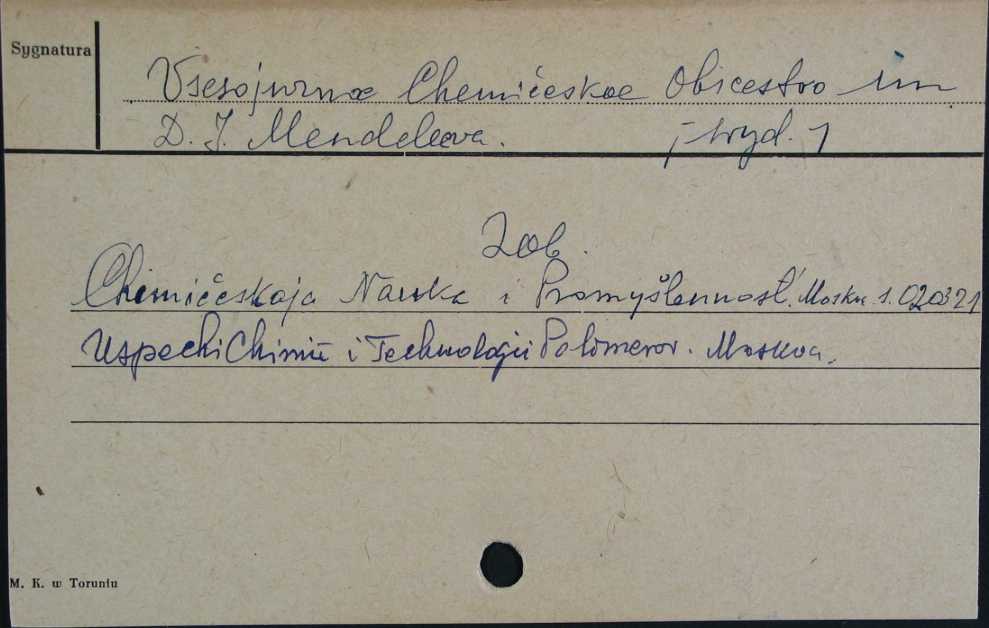 Sygnatura
Vsesojuznoe Chemičeskoe Obščestvo im
D. I. Mendeleeva. /wyd. 1
Zob.
Chimičeskaja Nauka i Promyšlennost'. Moskva s. 020321
Uspechi Chimii i Technologii Polimerov. Moskva.
M. K. w Toruniu